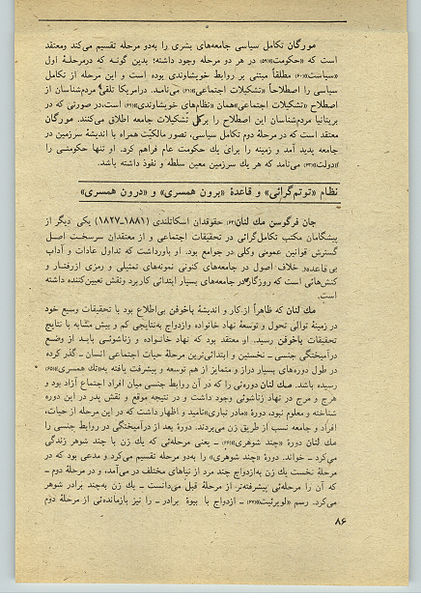 مورگان تکامل سیاسی جامعه‌های بشری را به‌دو مرحله تقسیم می‌کند ومعتقد
است که «حکومت» در هر دو مرحله وجود داشته؛ بدین گونه که درمرحلهٔ اول
«سیاست» مطلقاً مبتنی بر روابط خویشاوندی بوده است و این مرحله از تکامل
سیاسی را اصطلاحاً «تشکیلات اجتماعی» می‌نامد. درامریکا تلقی مردم‌شناسان از
اصطلاح «تشکیلات اجتماعی» همان «نظام‌های خویشاوندی» است، در صورتی که در
بریتانیا مردم‌شناسان این اصطلاح را برکل تشکیلات جامعه اطلاق می‌کنند. مورگان
معتقد است که در مرحلهٔ دوم تکامل سیاسی، تصور مالکیت همراه با اندیشهٔ سرزمین در
جامعه پدید آمد و زمینه را برای یک حکومت عام فراهم کرد. او تنها حکومتی را
«دولت» می‌نامد که هر یک سرزمین معین سلطه و نفوذ داشته باشد.
نظام «توتم‌گرائی» و قاعدهٔ «برون همسری» و «درون همسری»
جان فرگوسن مک لنان حقوقدان اسکاتلندی (۱۸۸۱-۱۸۲۷) یکی دیگر از
پیشگامان مکتب تکامل‌گرائی در تحقیقات اجتماعی و از معتقدان سرسخت اصل
گسترش قوانین عمومی وکلی در جوامع بود. او باورداشت که تداول عادات و آداب
بی‌قاعده، خلاف اصول در جامعه‌های کنونی نمونه‌های تمثیلی و رمزی ازرفتار و
کنش‌هائی است که روزگاری در جامعه‌های بسیار ابتدائی کاربرد ونقش تعیین‌کننده داشته
است.
مک لنان که ظاهراً از کار و اندیشهٔ باخوفن بی‌اطلاع بود با تحقیقات وسیع خود
در زمینهٔ توالی تحول و توسعهٔ نهاد خانواده وازدواج به‌نتایجی کم و بیش مشابه با نتایج
تحقیقات باخوفن رسید. او معتقد بود که نهاد خانواده و زناشوئی باید از وضع
درآمیختگی جنسی ـ نخستین و ابتدائی‌ترین مرحلهٔ حیات اجتماعی انسان ـ گذر کرده
در طول دوره‌های بسیار دراز و متمایز از هم توسعه و پیشرفت یافته به «تک همسری»
رسیده باشد. مک لنان دوره‌ئی را که در آن روابط جنسی میان افراد اجتماع آزاد بود و
هرج و مرج در نهاد زناشوئی وجود داشت و در نتیجه موقع و نقش پدر در این دوره
شناخته و معلوم نبود، دورهٔ «مادر تباری» نامید و اظهار داشت که در این مرحله از حیات،
افراد و جامعه نسب از طریق زن می‌بردند. دورهٔ بعد از درآمیختگی در روابط جنسی را
مک لنان دورهٔ «چند شوهری» ـ یعنی مرحله‌ئی که یک زن با چند شوهر زندگی
می‌کرد ـ خواند. دورهٔ «چند شوهری» را به‌دو مرحله تقسیم می‌کرد و مدعی بود که در
مرحلهٔ نخست یک زن به‌ازدواج چند مرد از نیاهای مختلف در می‌آمد، و در مرحلهٔ دوم ـ
که آن را مرحله‌ئی پیشرفته‌تر از مرحلهٔ قبل می‌دانست ـ یک زن به‌چند برادر شوهر
می‌کرد. رسم «لویرئیت» ـ ازدواج با بیوهٔ برادر ـ را نیز بازمانده‌ئی از مرحلهٔ دوم
۸۶